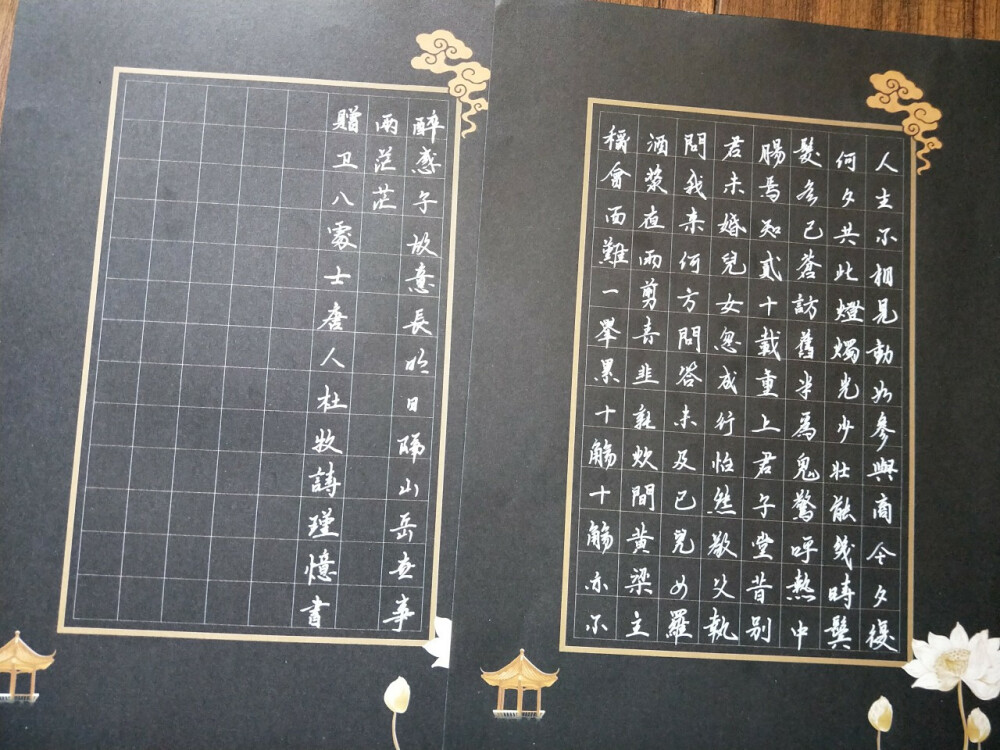 人生不相見動如參與商今夕復
何夕共此燈燭光少壯能幾時鬢
髮各已蒼訪舊半爲鬼驚呼熱中
腸焉知貳十載重上君子堂昔別
君未婚兒女忽成行怡然敬父執
問我来何方問答未及已兒女羅
酒漿夜雨剪春韭新炊間黃粱主
稱會面難一舉累十觴十觴亦不
醉感子故意長明日隔山岳世事
兩茫茫
贈卫八處士唐人杜牧詩瑾憶書